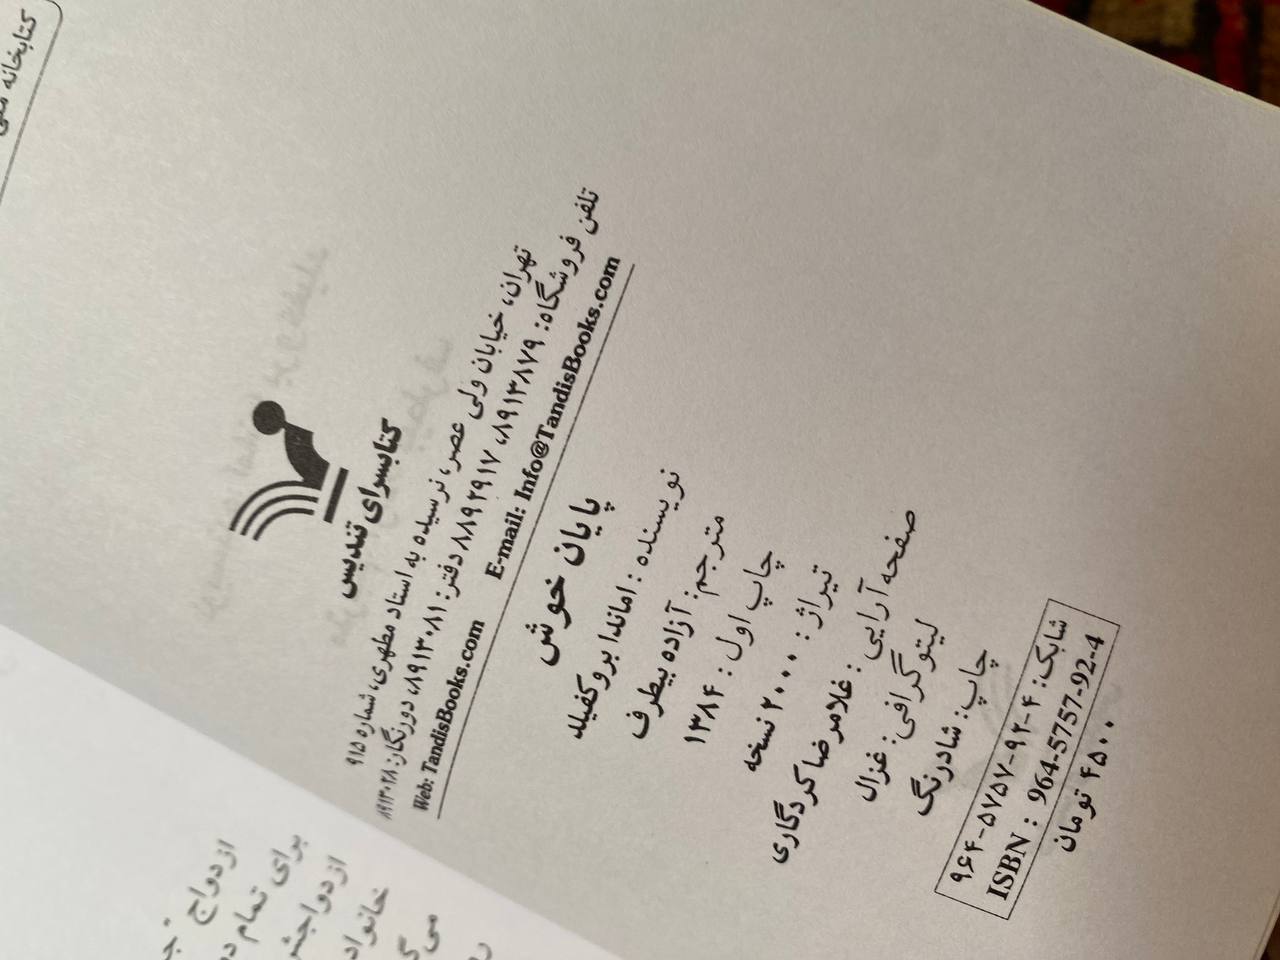 کتابخانه ملی
کتابسرای تندیس
تهران، خیابان ولی عصر، نرسیده به استاد مطهری، شماره ۹۱۵
تلفن فروشگاه: ۸۸۹۲۹۱۷ ،۸۹۱۳۸۷۹ دفتر: ۸۹۱۳۰۸۱، دورنگار: ۸۹۱۳۰۲۸
Web: TandisBooks.com E-mail: Info@TandisBooks.com
پایان خوش
نویسنده: اماندا بروکفیلد
مترجم: آزاده بیطرف
چاپ اول: ۱۳۸۴
تیراژ: ۲۰۰۰ نسخه
صفحه آرایی: غلامرضا کردگاری
لیتوگرافی: غزال
چاپ: شادرنگ
شابک: ۴-۹۲-۵۷۵۷-۹۶۴
ISBN : 964-5757-92-4
۴۵۰۰ تومان
ازدواج
برای تمام